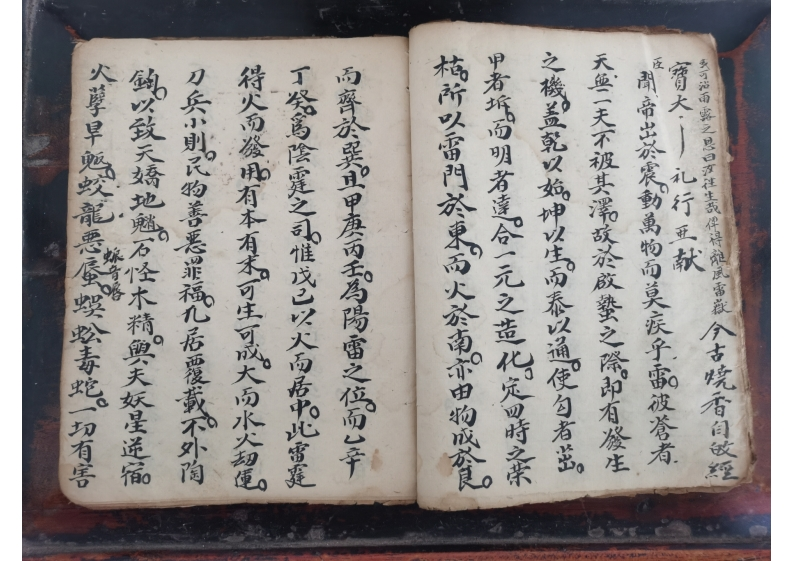 炁可沾雨露之恩曰汝往生哉俾得離風雷嶽 今古燒香
寳大 礼行亞献
臣聞帝出於震動萬物而莫疾乎雷彼蒼者
天無一夫不被其澤故於啟蟄之際即有發生
之機盖乾以始坤以生而泰以通使勾者出
甲者坼而明者達合一元之造化定四時之荣
枯所以雷門於東而火於南亦由物成於艮
而齊於巽且甲庚丙壬為陽雷之位而乙辛
丁癸為陰霆之司惟戊己以火而居中此雷霆
得火而發用有本有末可生可成大而水火刧運
刀兵小則民物善惡罪福凢居覆載不外陶
鈎以致天嬌地魈石怪木精與夫妖星逆宿
火孽旱魃蛟龍悪蜃蜈蚣毒蛇一切有害